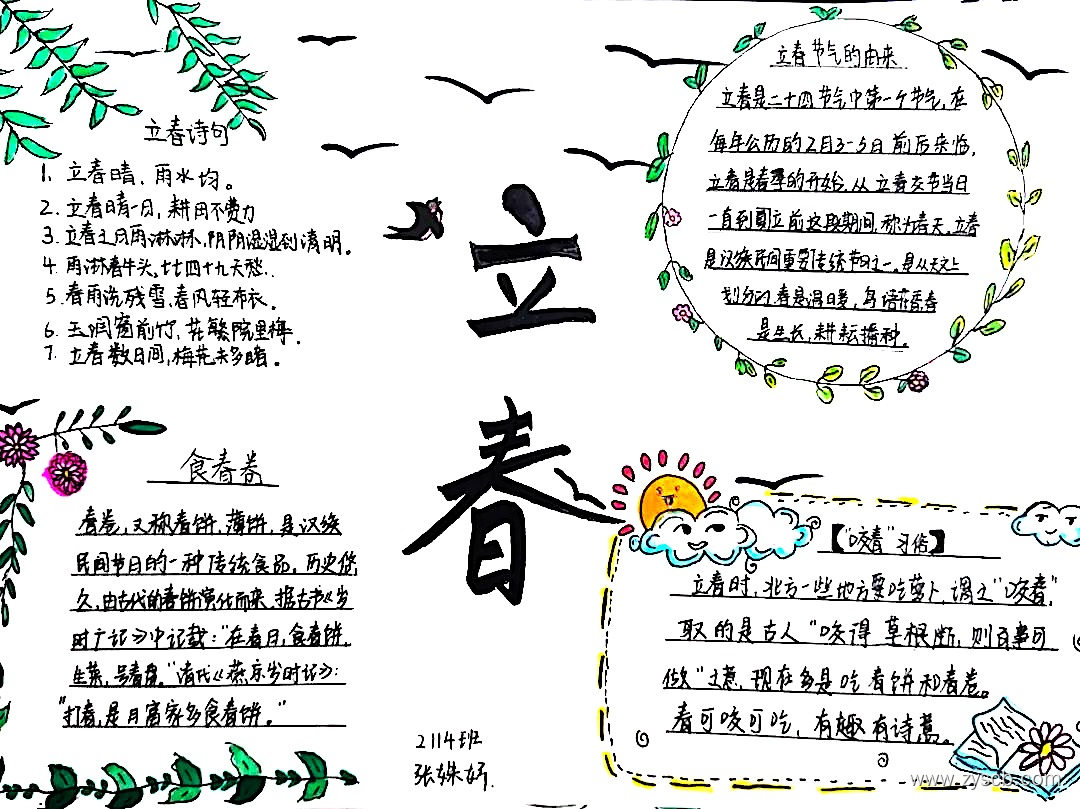 立春诗句
1. 立春晴,雨水均。
2. 立春晴一日,耕田不费力
3. 立春之日雨淋淋,阴阴湿湿到清明。
4. 雨淋春牛头,七七四十九天愁.
5. 春雨洗残雪,春风轻布衣。
6. 玉润窗前竹,花繁院里梅.
7. 立春数日间,梅花未多睹。
立春
立春节气的由来
立春是二十四节气中第一个节气,在
每年公历的2月3-5日前后来临,
立春是春季的开始,从立春交节当日
一直到夏立前这段期间,称为春天,立春
是汉族民间重要传统节日之一。是从天文上
划分的,春是温暖,鸟语花香
是生长,耕耘播种。
食春卷
春卷,又称春饼,薄饼,是汉族
民间节日的一种传统食品,历史悠
久,由古代的春饼演化而来,据古书《岁
时广记》中记载:"在春日,食春饼,
生菜,号春盘。"清代《燕京岁时记》:
"打春,是月富家多食春饼。"
【"咬春"习俗】
立春时,北方一些地方要吃萝卜,谓之"咬春",
取的是古人"咬得草根断,则百事可
做"之意,现在多是吃春饼和春卷。
春可咬可吃,有趣有诗意。
2114班
张姝妤.
www.zyscb.com